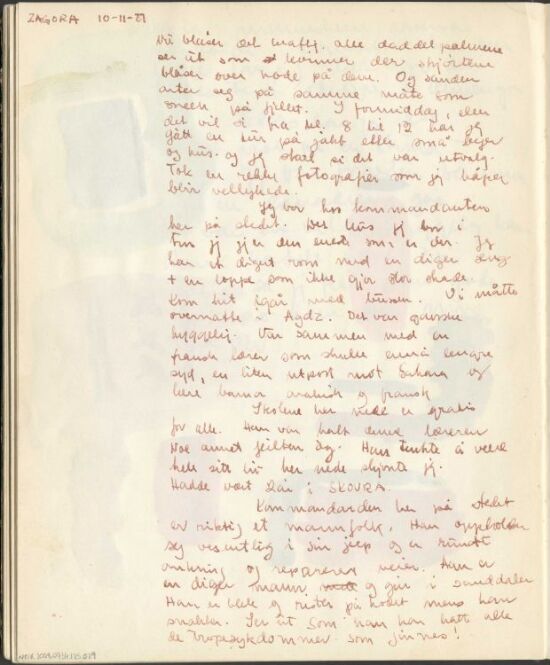 ZAGORA 10-11-
det blåser det kraftig. alle daddelpalmene
ser ut som kvinner der skjørtene
blåser over hode på dem. Og sanden
arter seg på samme måte som
sneen på fjellet. I formiddag, eller
det vil si fra kl. 8 til 12 har jeg
gått en tur på jakt etter små
og hus. og jeg skal si det var utvalg.
Tok en rekke fotografier som jeg håper
blir vellykkede.
Jeg bor hos kommandanten
her på stedet. Det hus jeg bor i
tror jeg er den eneste som er der. Jeg
har et diger rom med en diger seng
+ en loppe som ikke gjør stor skade.
Kom hit igår med bussen. Vi måtte
overnatte i Agdz. Det var ganske
hyggelig. Var sammen med en
fransk lærer som skulle ennå lengre
syd, en liten utpost mot Sahara og
lære barna arabisk og fransk
Skolene her nede er gratis
for alle. Han var halt denne læreren
Noe annet feilte ham. Han tenkte å være
hele sitt liv her nede skjønte jeg.
Hadde vært 2 år i SKOURA.
Kommandanten her på stedet
er riktig et mannfolk. Han oppholder
seg vesentlig i sin jeep og er rundt
omkring og reparerer veier. Han er
en diger mann og går i sandaler
Han er blek og rister på hodet mens han
snakker. Ser ut som han har hatt alle
de tropesykdommer som finnes!